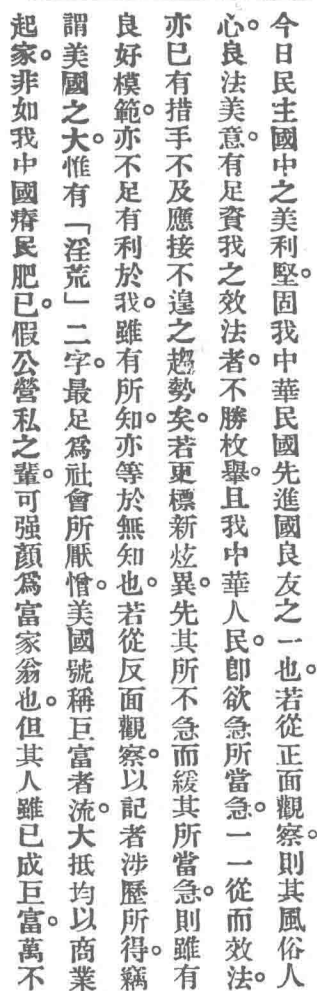 今日民主國中之美利堅。固我中華民國先進國良友之一也。若從正面觀察。則其風俗人
心。良法美意。有足資我之效法者。不勝枚舉。且我中華人民。卽欲急所當急。一一從而效法。
亦已有措手不及應接不遑之趨勢矣。若更標新炫異。先其所不急而緩其所當急。則雖有
良好模範。亦不足有利於我。雖有所知。亦等於無知也。若從反面觀察。以記者涉歷所得。竊
謂美國之大。惟有「淫荒」二字。最足爲社會所厭憎。美國號稱巨富者流。大抵均以商業
起家。非如我中國瘠民肥已。假公營私之輩。可强顏爲富家翁也。但其人雖已成巨富。萬不